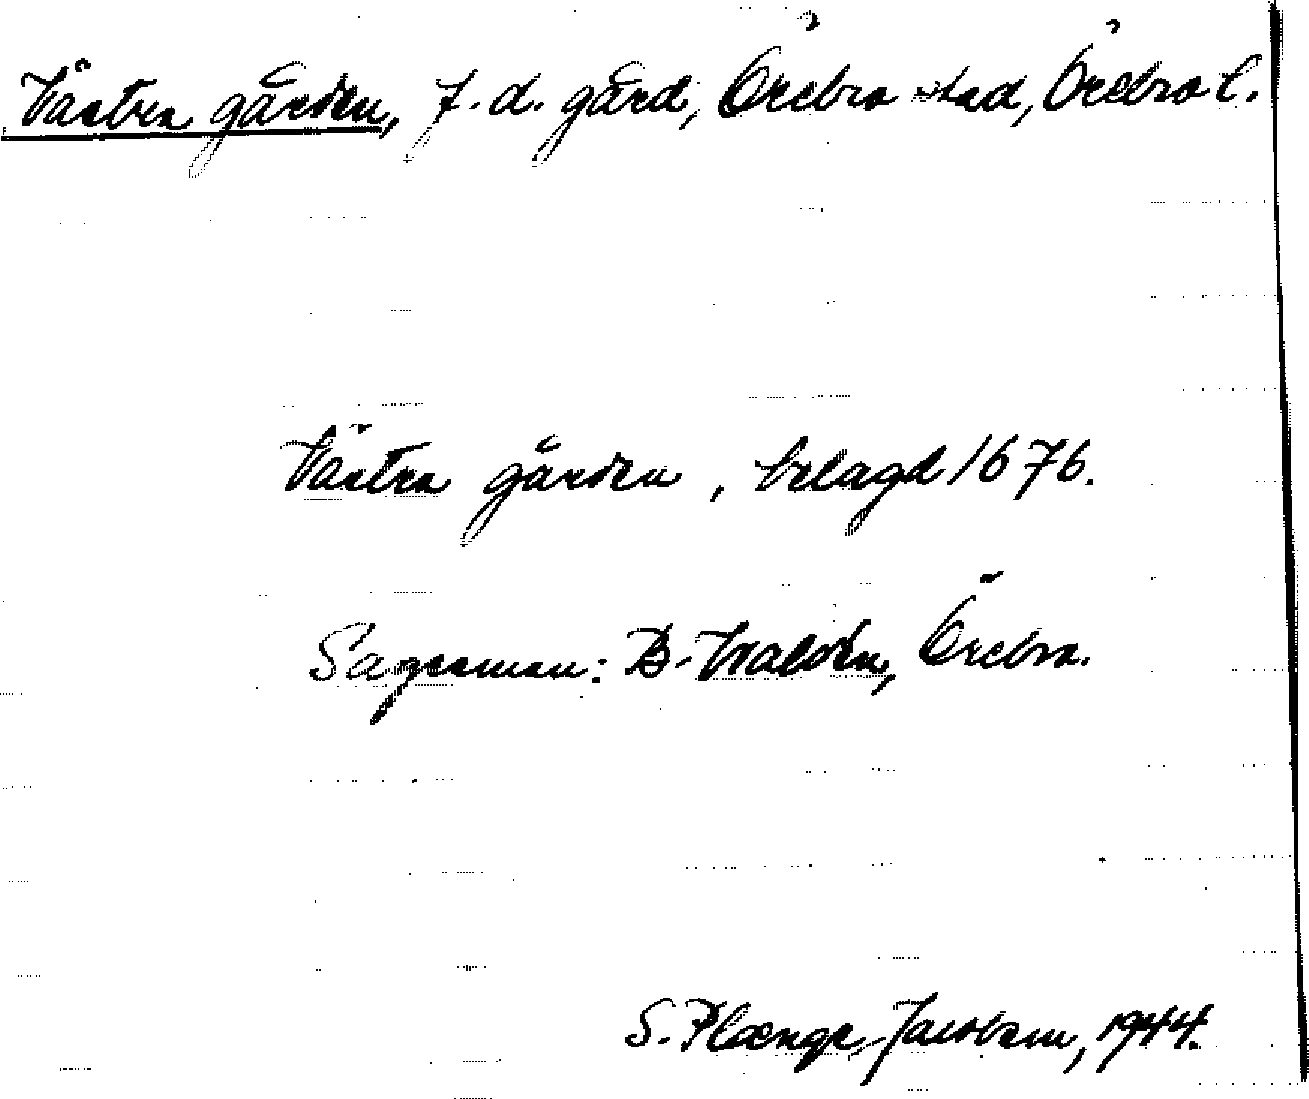 Västra gården, f.d. gård, Örebro stad, Örebro l.
Västra gården, belagd 1676.
Sagesman: B. Waldén, Örebro.
S. Plænge Jacobson, 1944.